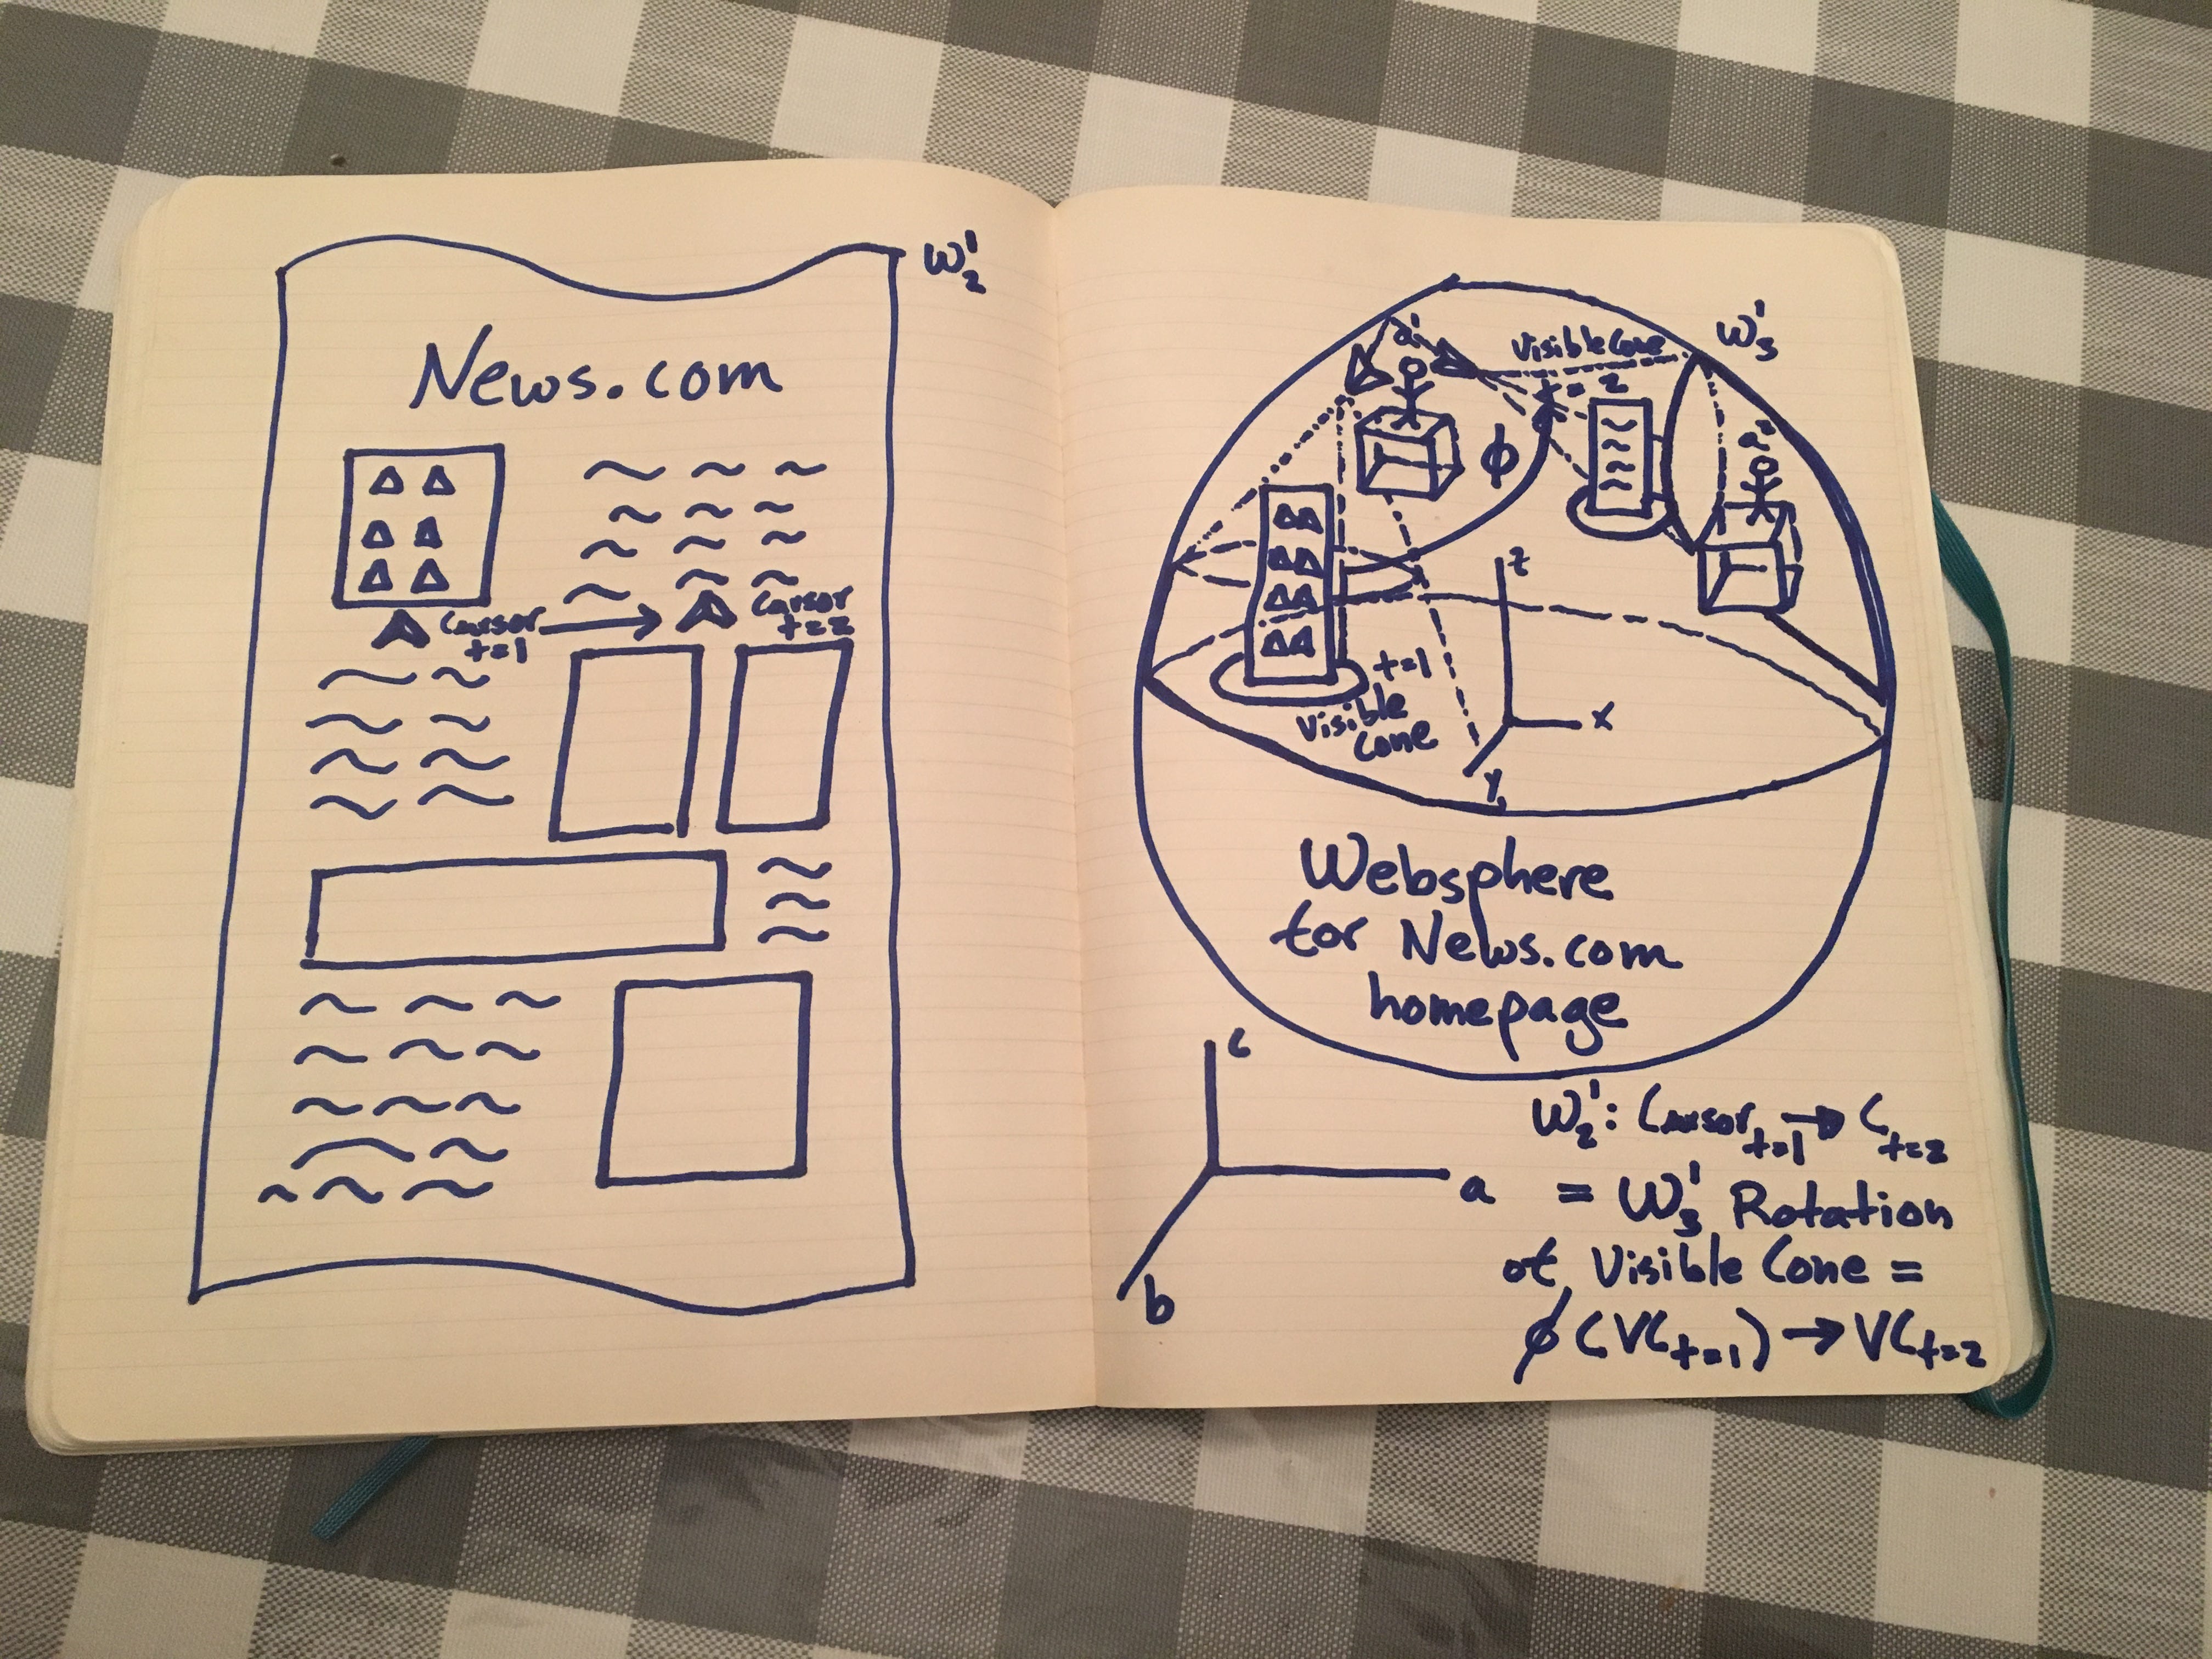 W¹₂
News.com
Cursor
t=1
Cursor
t=2
W¹₃
a¹
Visible Cone
t=2
a²
ϕ
z
x
y
t=1
Visible
Cone
Websphere
for News.com
homepage
c
a
b
W¹₂: Cursor t=1 → C t=2
= W¹₃ Rotation
of Visible Cone =
ϕ(VC t=1) → VC t=2